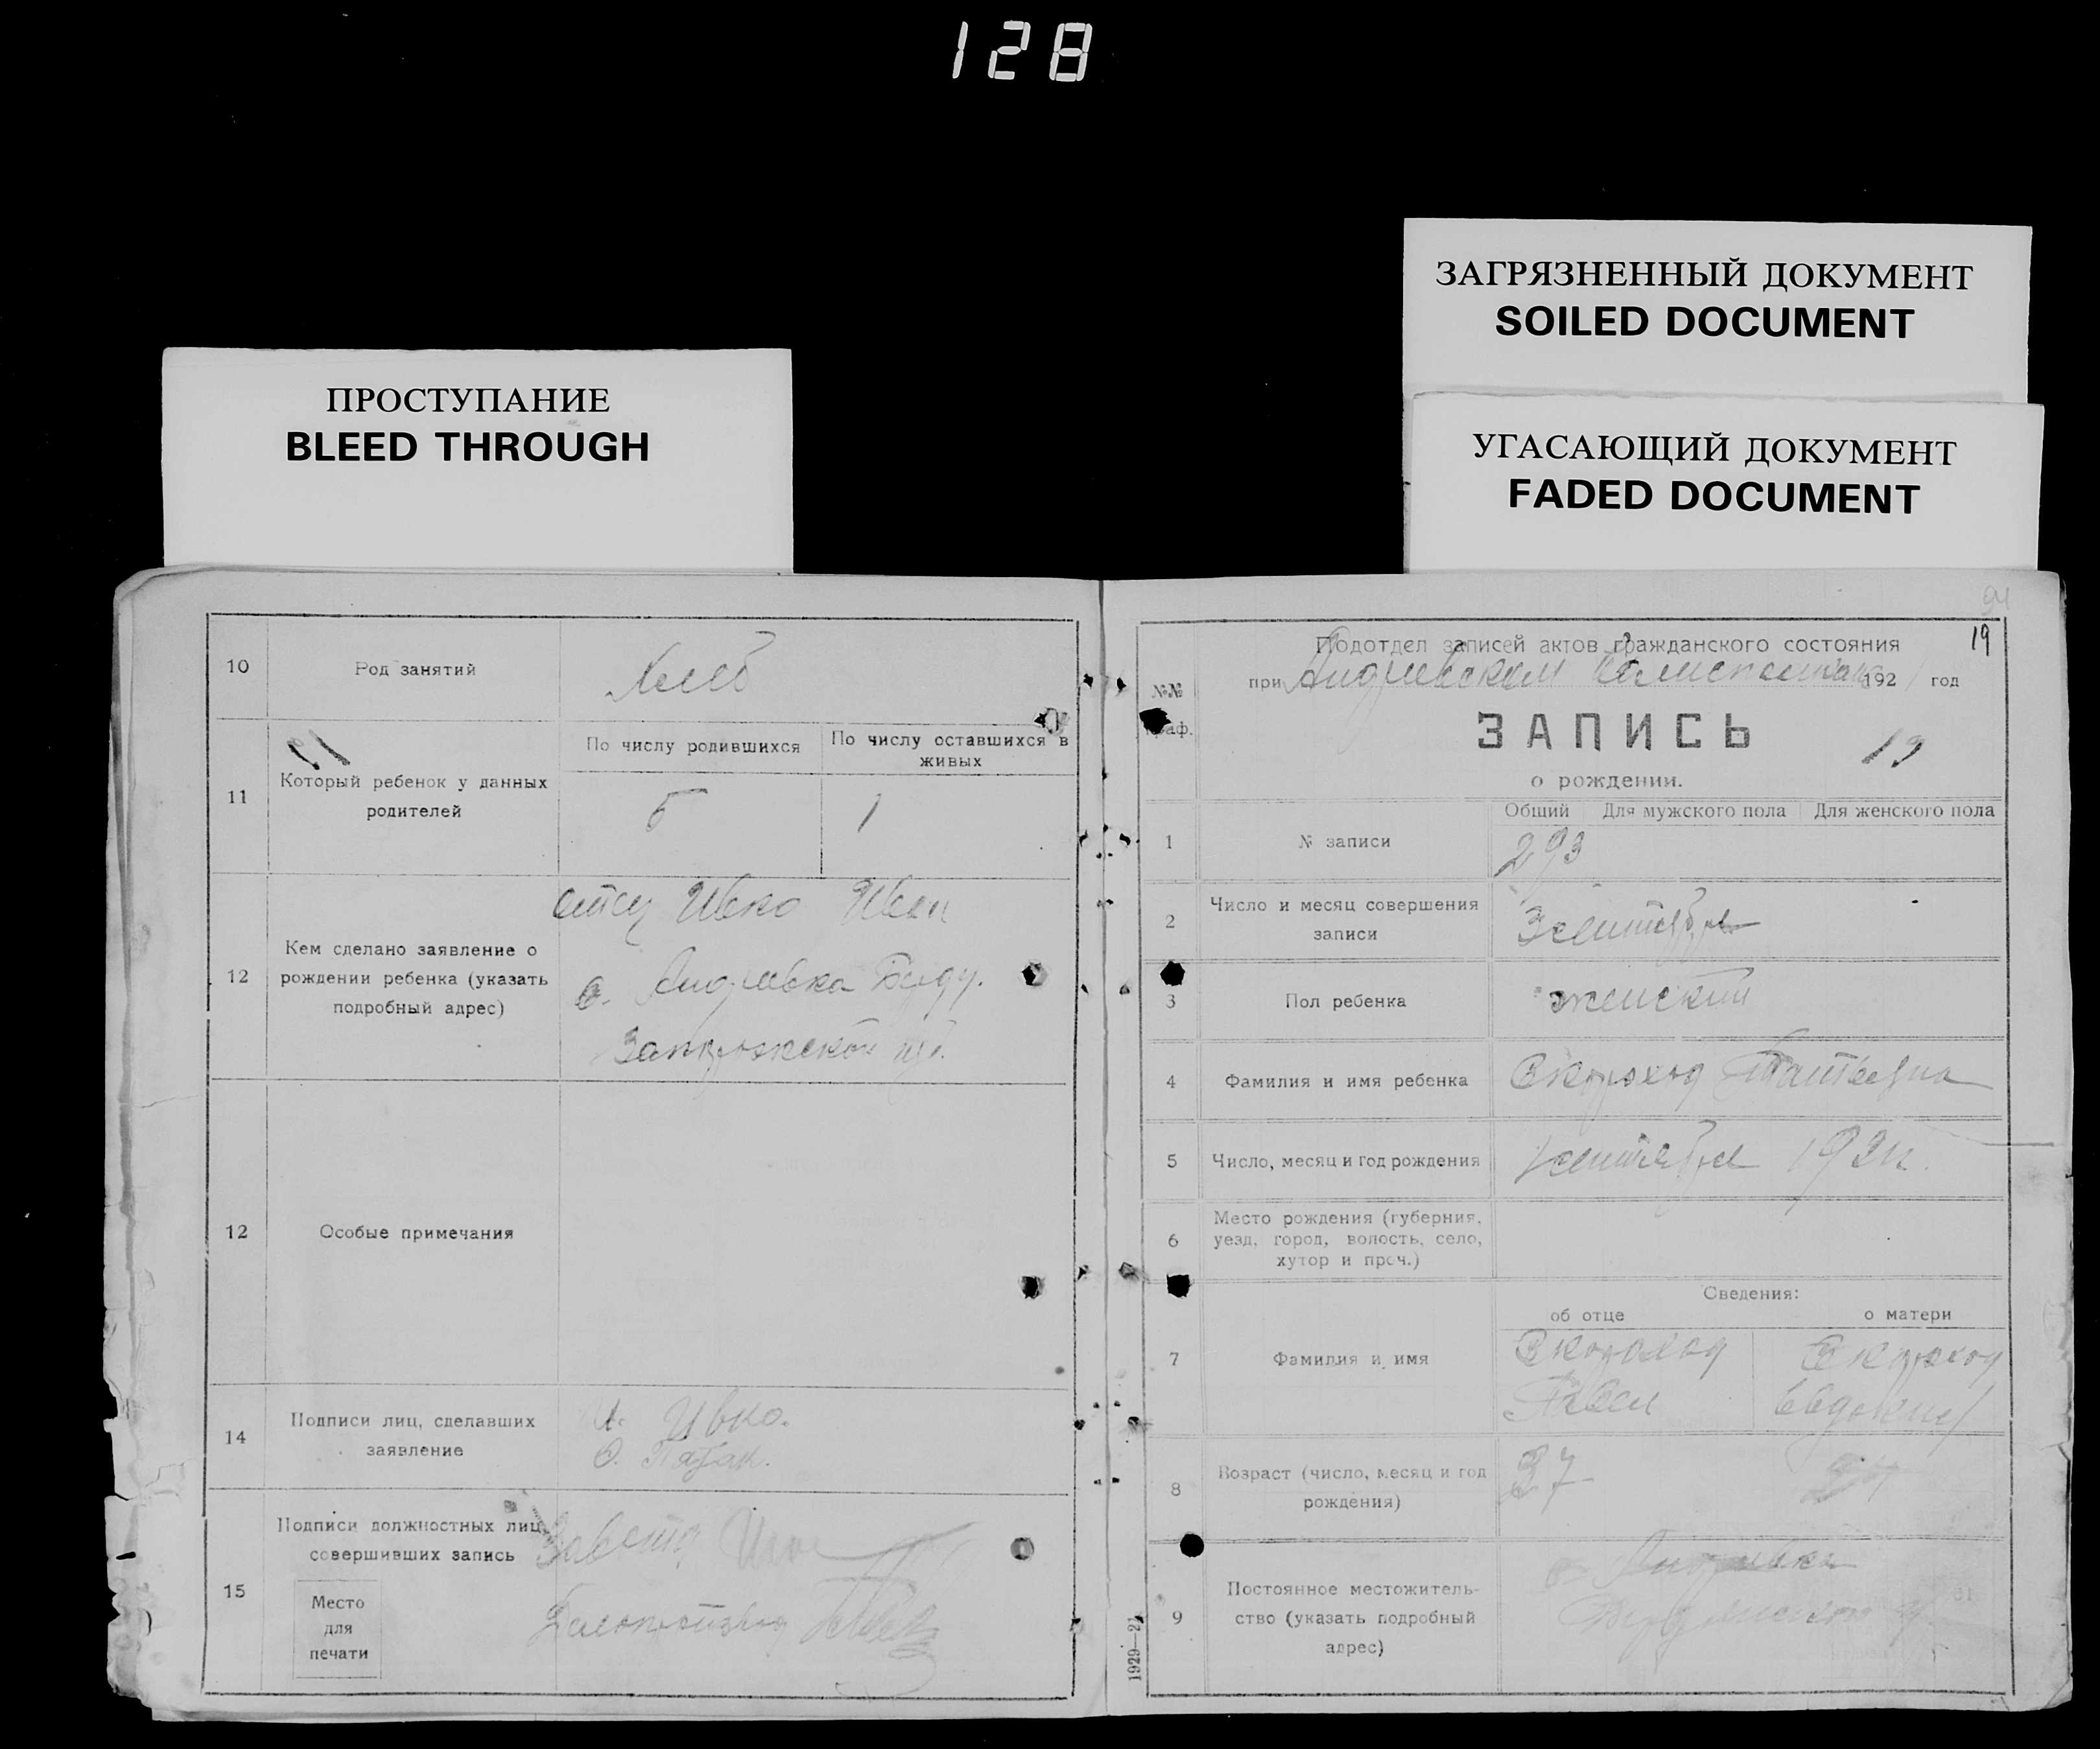 128
ЗАГРЯЗНЕННЫЙ ДОКУМЕНТ
SOILED DOCUMENT
УГАСАЮЩИЙ ДОКУМЕНТ
FADED DOCUMENT
ПРОСТУПАНИЕ
BLEED THROUGH
10
Род занятий
Хлеб
11
Который ребенок у данных
родителей
По числу родившихся
По числу оставшихся в
живых
5
1
12
Кем сделано заявление о
рождении ребенка (указать
подробный адрес)
отец Ивко Иван
с. Андреевка Берду.
Запорожской губ.
12
Особые примечания
14
Подписи лиц, сделавших
заявление
И. Ивко.
15
Подписи должностных лиц,
совершивших запись
Место
для
печати
Делопроизвод
19
Подотдел записей актов гражданского состояния
№№
граф.
при Андреевском 192 год
ЗАПИСЬ
19
о рождении.
Общий
Для мужского пола
Для женского пола
1
№ записи
293
2
Число и месяц совершения
записи
3 сентября
3
Пол ребенка
женский
4
Фамилия и имя ребенка
Скороход
5
Число, месяц и год рождения
1 сентября 192
6
Место рождения (губерния,
уезд, город, волость, село,
хутор и проч.)
Сведения:
об отце
о матери
7
Фамилия и имя
Скороход
Скороход
Евдокия
8
Возраст (число, месяц и год
рождения)
37
9
Постоянное местожитель-
ство (указать подробный
адрес)
с. Андреевка
1929—21